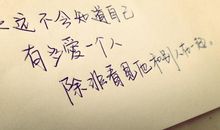 远不会知道自己
有多爱一个人
除非看见他和别人在一起。